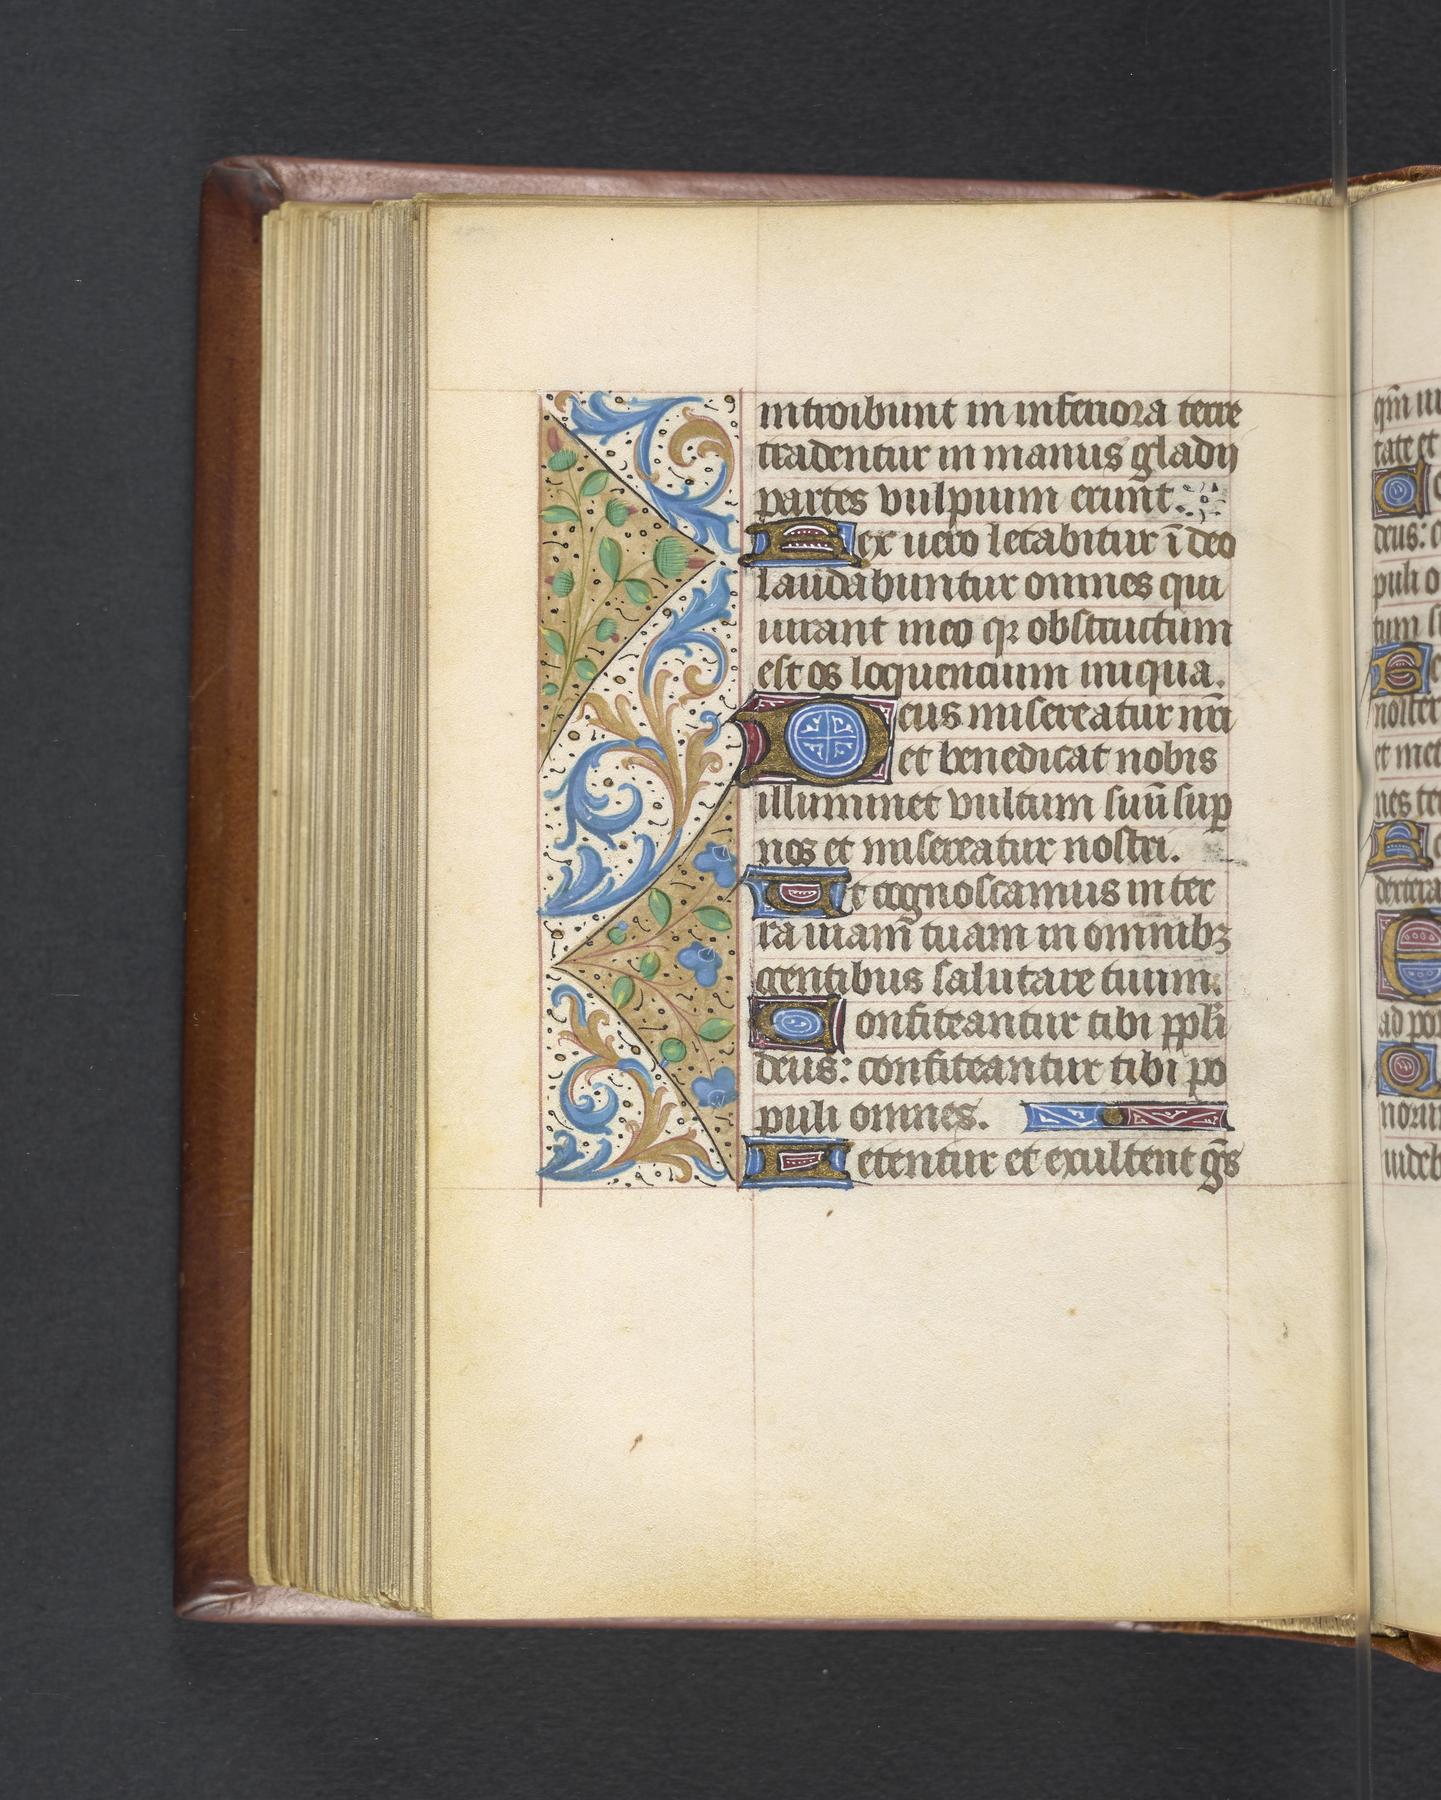 introibunt in inferiora terre
tradentur in manus gladij
partes vulpium erunt
Rex uero letabitur ī deo
laudabuntur omnes qui
iurant in eo qꝛ obstructum
est os loquencium iniqua.
Deus misereatur nr̄i
et benedicat nobis
illuminet vultum suū suꝑ
nos et misereatur nostri.
Ut cognoscamus in ter
ra uiam̄ tuam in omnibꝫ
gentibus salutare tuum.
Confiteantur tibi ppl̄i
deus: confiteantur tibi po
puli omnes.
Letentur et exultent gn̄s
qm̄
tate et
deus:
puli o
tum
noster
et met
nes
dextera
ad
norun